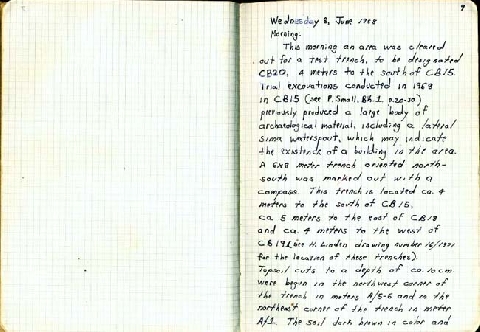 7
Wednesday 8, June 1988
Morning.
This morning an area was cleared
out for a test trench, to be designated
CB20, 4 meters to the south of CB15.
Trial excavations conducted in 1969
in CB15 (see P. Small, Bk.1 p.20-30)
previously produced a large body of
archaeological material, including a lateral
sima waterspout, which may indicate
the existence of a building in the area.
A 5x5 meter trench oriented north-
south was marked out with a
compass. This trench is located ca. 4
meters to the south of CB15,
ca. 5 meters to the east of CB18
and ca. 4 meters to the west of
CB19 (see H. Linden drawing number 16/1971
for the location of these trenches).
Topsoil cuts to a depth of ca. 10cm
were begun in the northwest corner of
the trench in meters A/5-6 and in the
northeast corner of the trench in meter
A/1. The soil dark brown in color and